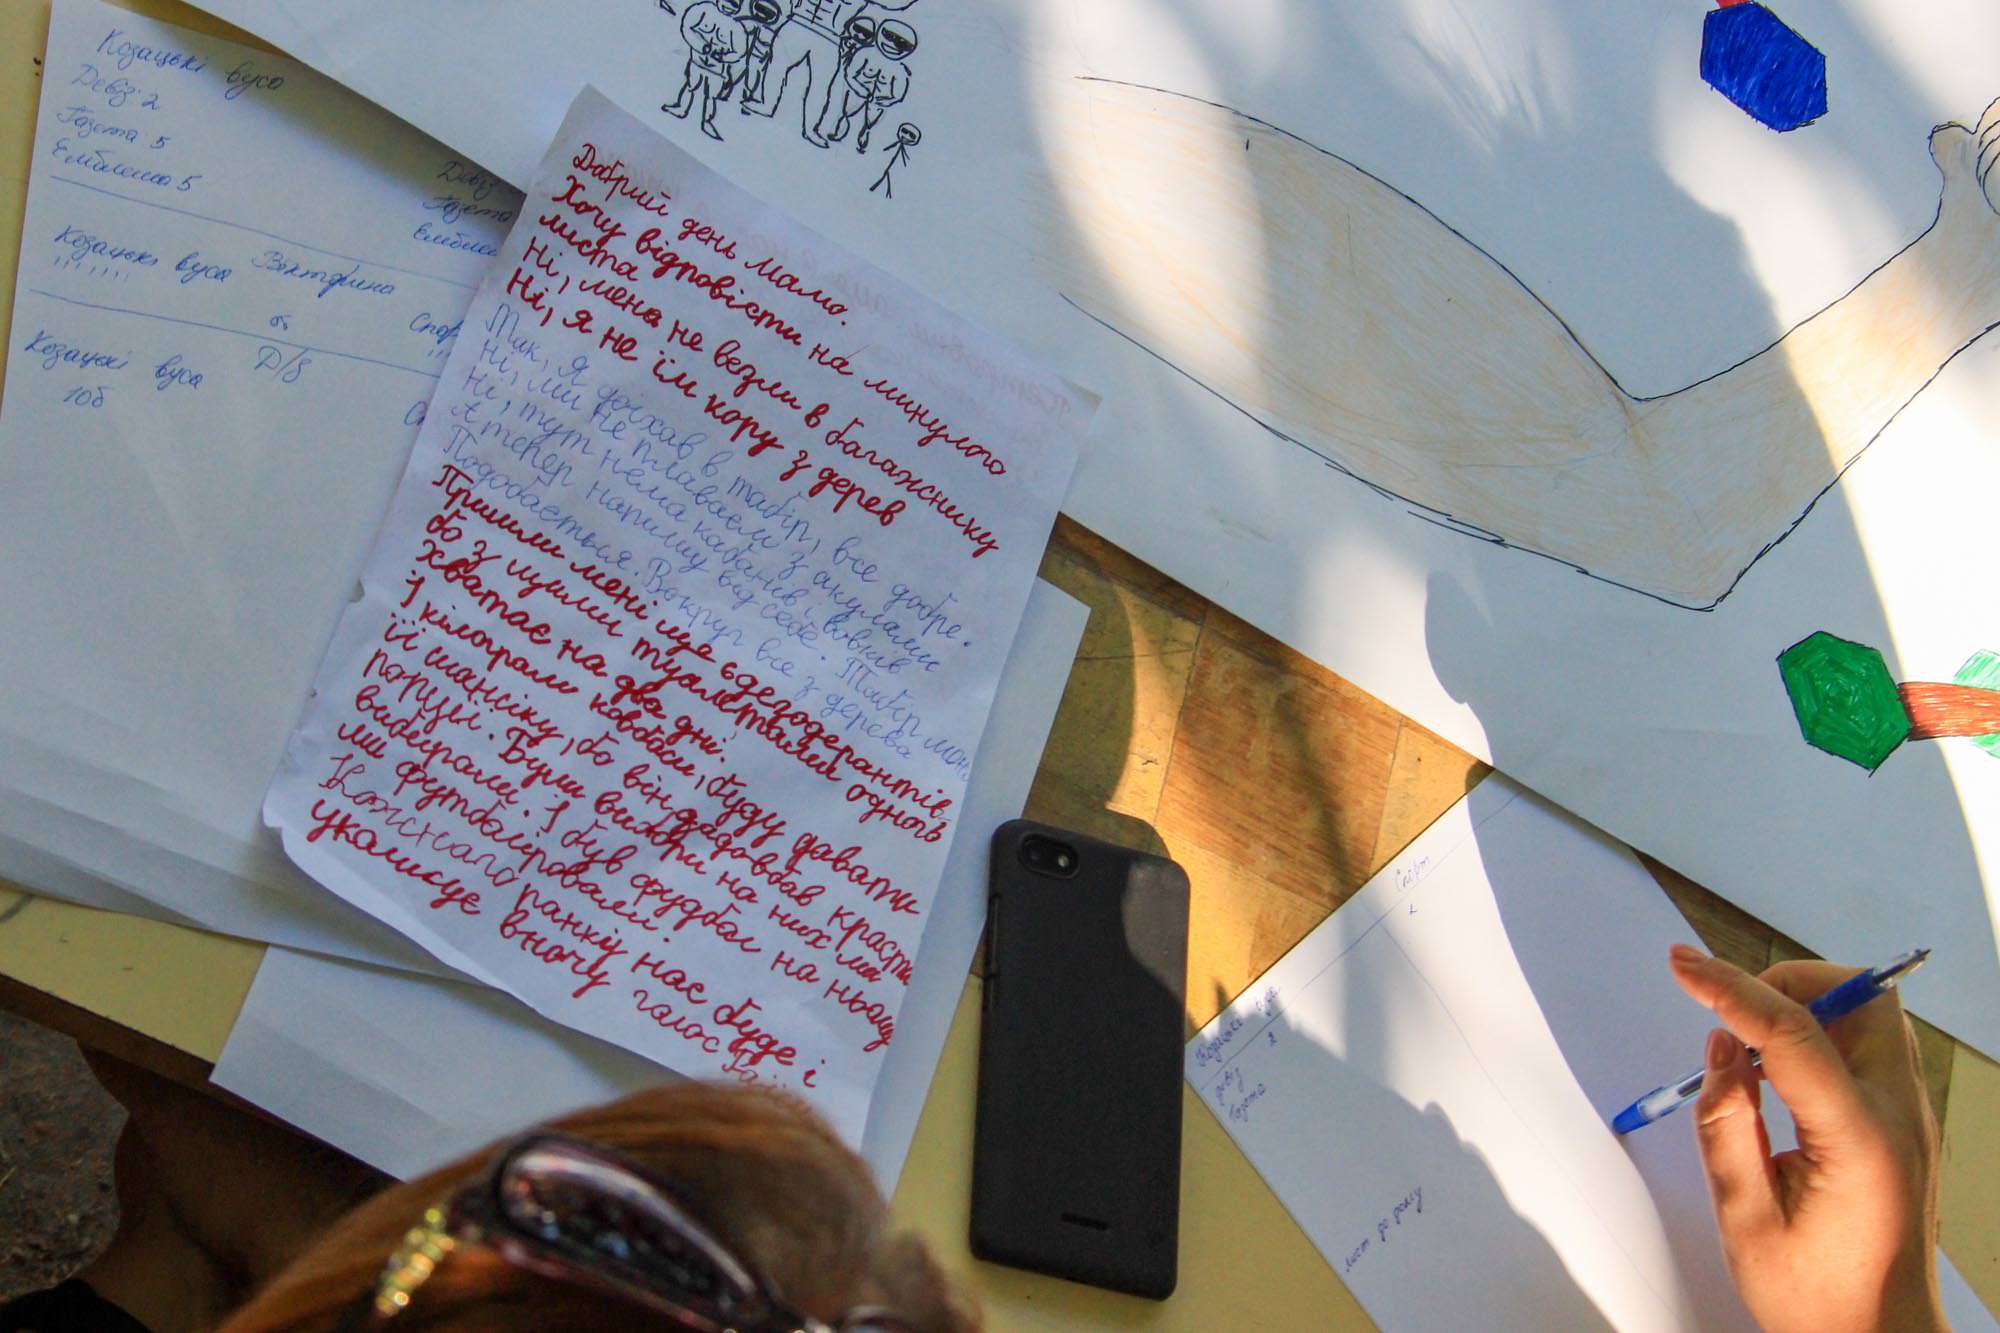 Козацькі вуса
Девіз: 2
Газета 5
Емблема 5
Девіз
Газета
Ембле
Козацькі вуса Віктфрина Спор
Козацькі вуса Д/з
10б
Добрий день мамо.
Хочу відповісти на минулого
листа
Ні, мена не везли в багажнику
Ні, я не їм кору з дерев
Так, я доїхав в табір, все добре.
Ні, ми не плаваєм з акулами
Ні, тут нема кабанів і вовків
А тепер напишу від себе. Табір мені
Подобається. Вокруг все з дерева
Пришли мені ще 6 дезодерантів
бо з цими туалетами одного
хватає на два дні.
1 кілограм ковбаси, буду давати
її шансіку, бо він задовбав красти
порції. Були вибори на них ми
вибирали. І був фудбол на ньому
ми футболіровали.
Кожного ранку нас буде і
уколисує вночу голос Га
Спорт
2
Козацькі вуса
2
девіз
Газета
лист до дому